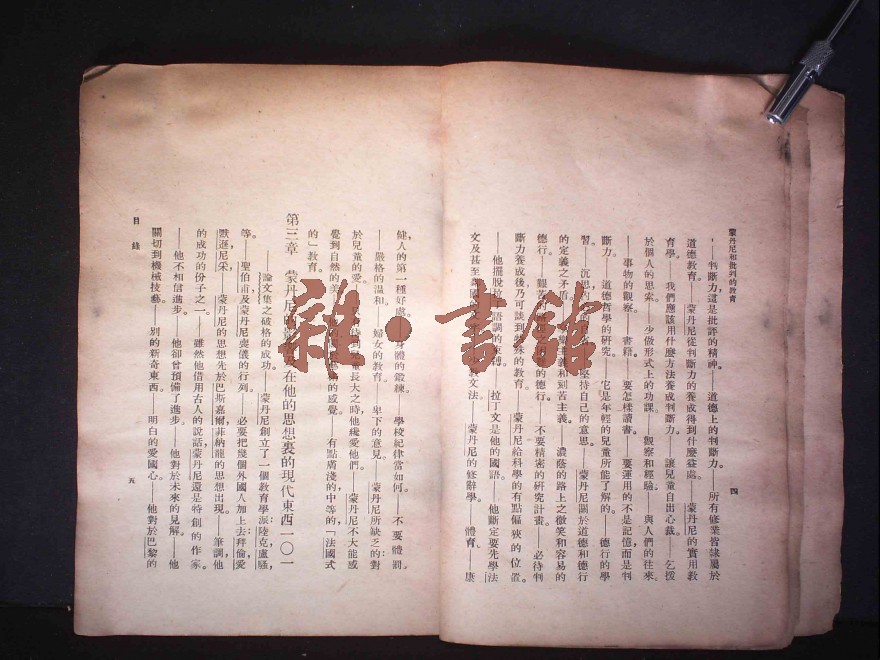 蒙丹尼和批判的教育
四
，判斷力，這是批評的精神。——道德上的判斷力。——所有修業皆隸屬於
道德教育。——蒙丹尼從判斷力的養成得到什麼益處。——蒙丹尼的實用教
育學。——我們應該用什麼方法養成判斷力。——讓兒童自出心裁。——乞援
於個人的思索。——少做形式上的功課。——觀察和經驗。——與人們的往來。
——事物的觀察。——書籍。——要怎樣讀書。——要運用的不是記憶而是判
斷力。——道德哲學的研究。——它是年輕的兒童所能了解的。——德行的學
習。——沉思。堅持自己的意思。——蒙丹尼關於道德和德行
的定義之矛盾。主義和刻苦主義。——濃蔭的路上之微笑和容易的
德行。——艱苦的德行。——不要精密的研究計畫。——必待判
斷力養成後乃可談到特殊的教育。——蒙丹尼給科學的有點偏狹的位置。
——他擺脫拉丁語調的束縛。——拉丁文是他的國語。——他斷定要先學法
文及甚至鄰國文法。——蒙丹尼的修辭學。——體育。——康
健，人的第一種好處。身體的鍛練。——學校紀律當如何。——不要體罰。
——嚴格的溫和。——婦女的教育。——卑下的意見。——蒙丹尼所缺乏的：對
於兒童的愛。長大之時他纔愛他們。——蒙丹尼不大能感
覺到自然的美。的感覺。——有點膚淺的，中等的，「法國式
的」教育。
第三章　蒙丹尼的在他的思想裏的現代東西一〇一
——論文集之破格的成功。——蒙丹尼創立了一個教育學派：陸克，盧騷，
等。——聖伯甫及蒙丹尼喪儀的行列。——必要把幾個外國人加上去：拜倫，愛
默遜，尼采。——蒙丹尼的思想先於巴斯嘉爾，菲納龍的思想出現。——筆調，他
的成功的份子之一。——雖然他借用古人的說話，蒙丹尼還是特創的作家。
——他不相信進步。——他卻曾預備了進步。——他對於未來的見解。——他
關切到機械技藝。——別的新奇東西。——明白的愛國心。——他對於巴黎的
目錄
五
雜·書館